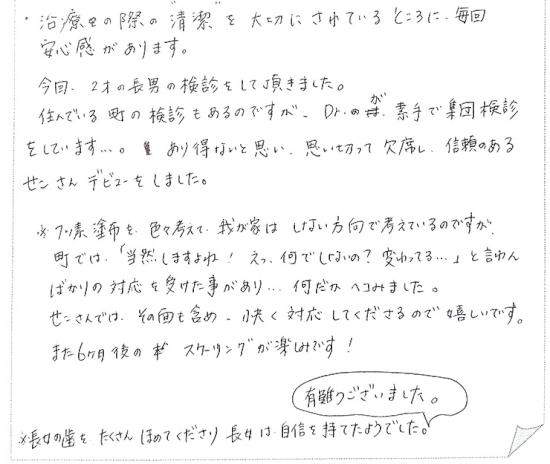 ・治療その際の"清潔"を大切にされているところに、毎回
安心感があります。
今回、2才の長男の検診をして頂きました。
住んでいる町の検診もあるのですが、Dr.が素手で集団検診
をしています…。あり得ないと思い、思い切って欠席し、信頼のある
せンさんデビューをしました。
※フッ素塗布を、色々考えて、我が家はしない方向で考えているのですが、
町では、「当然しますよね！えっ、何でしないの？変わってる…」と言わん
ばかりの対応を受けた事があり…何だかヘコみました。
せンさんでは、その面も含め、快く対応してくださるので嬉しいです。
また6ヶ月後のスケーリングが楽しみです！
有難うございました。
※長女の歯をたくさんほめてくださり長女は自信を持てたようでした。